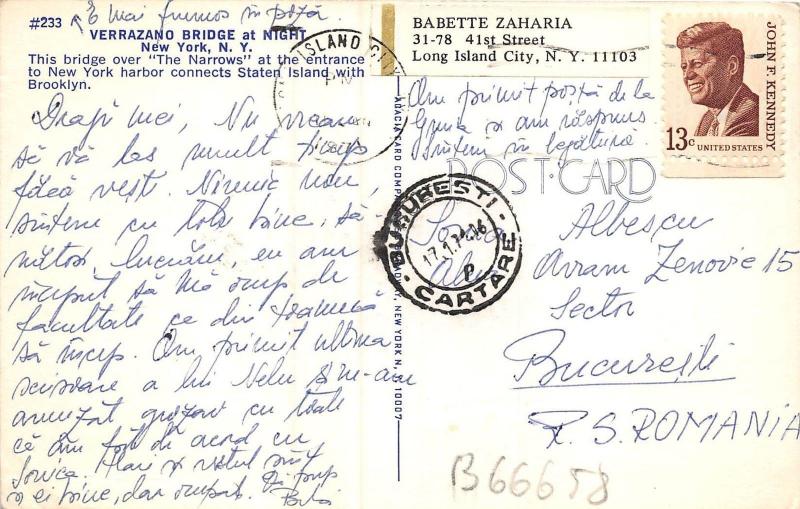 #233 E mai frumos în poză.
VERRAZANO BRIDGE at NIGHT
New York, N. Y.
This bridge over "The Narrows" at the entrance
to New York harbor connects Staten Island with
Brooklyn.
Dragii mei, Nu vream
să vă las mult timp
fără vești. Nimic nou,
sîntem cu toții bine, să-
nătoși, lucrăm, eu am
început să mă ocup de
facultate ce din toamnă
să încep. Am primit ultima
scisoare a lui Nelu și ne-am
amuzat grozav cu toate
că am fost de acord cu
Sorica. și restul sînt
și ei bine, dar ocupați.
BABETTE ZAHARIA
31-78 41st Street
Long Island City, N. Y. 11103
Am primit poștă de la
și am răspuns
sîntem în legătură.
JOHN F. KENNEDY
13c UNITED STATES
ISLAND CITY
POST CARD
BUCUREȘTI
17.1.74
P
CARTARE
Albescu
Avram Zenovie 15
Sector
București
R. S. ROMANIA
B66658
NEW YORK, N. Y. 10007